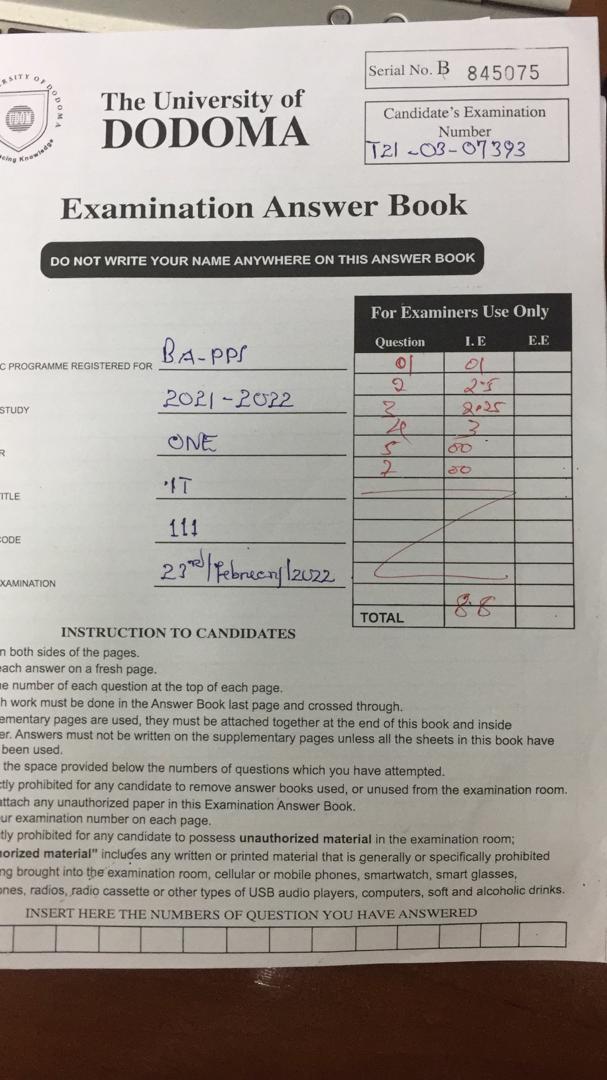 The University of
DODOMA
Serial No. B 845075
Candidate's Examination
Number
T21-03-07393
Examination Answer Book
DO NOT WRITE YOUR NAME ANYWHERE ON THIS ANSWER BOOK
C PROGRAMME REGISTERED FOR BA-PPS
STUDY 2021-2022
R ONE
ITLE IT
ODE 111
XAMINATION 23rd/Februery/2022
For Examiners Use Only
Question I.E E.E
01 01
2 2.5
3 2.25
4 3
5 00
7 00
TOTAL 8.8
INSTRUCTION TO CANDIDATES
n both sides of the pages.
each answer on a fresh page.
e number of each question at the top of each page.
h work must be done in the Answer Book last page and crossed through.
ementary pages are used, they must be attached together at the end of this book and inside
er. Answers must not be written on the supplementary pages unless all the sheets in this book have
been used.
the space provided below the numbers of questions which you have attempted.
ctly prohibited for any candidate to remove answer books used, or unused from the examination room.
attach any unauthorized paper in this Examination Answer Book.
ur examination number on each page.
tly prohibited for any candidate to possess unauthorized material in the examination room;
norized material" includes any written or printed material that is generally or specifically prohibited
ng brought into the examination room, cellular or mobile phones, smartwatch, smart glasses,
ones, radios, radio cassette or other types of USB audio players, computers, soft and alcoholic drinks.
INSERT HERE THE NUMBERS OF QUESTION YOU HAVE ANSWERED